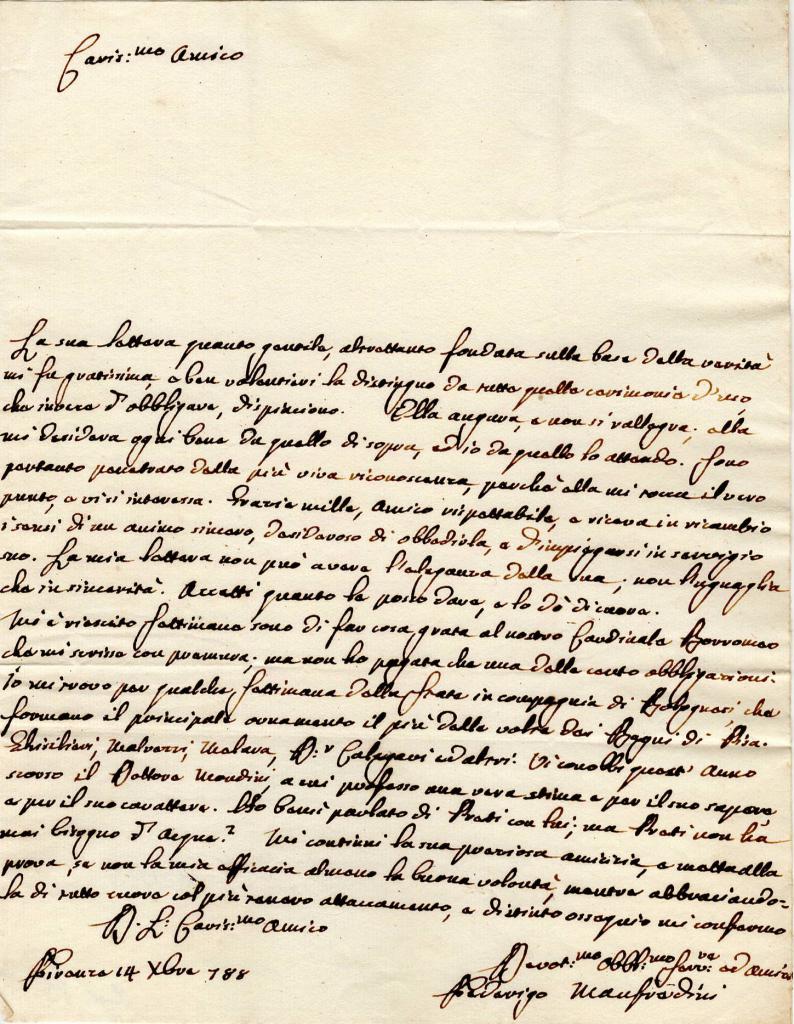 Caris:mo Amico
La sua lettera quanto gentile, altrettanto fondata sulla base della verità
mi fu gratissima, e ben volentieri la distinguo da tutte quelle cerimonie d'uso,
che invece d'obbligare, dispiaciono. Ella augura, e non si rallegra; ella
mi desidera ogni bene da quello di sopra, ed io da quello lo attendo. Sono
pertanto penetrato della più viva riconoscenza, perchè ella mi tocca il vero
punto, e vi si interessa. Grazie mille, Amico rispettabile, e riceva in ricambio
i sensi di un animo sincero, desideroso di obbedirla, e d'impiegarsi in servigio
suo. La mia lettera non può avere l'eleganza della sua; non l'uguaglia
che in sincerità. Accetti quanto le posso dare, e lo dò di cuore.
Mi è riescito settimane sono di far cosa grata al nostro Cardinale Borromeo
che mi scrisse con premura; ma non ho pagata che una delle cento obbligazioni.
Io mi trovo per qualche settimana della state in compagnia di Bolognesi, che
formano il principale ornamento il più delle volte dei Bagni di Pisa.
Ghisilieri, Malvezzi, Malara, D:r Calegari ed altri. Vi conobbi quest'anno
scorso il Dottore Mondini, a cui professo una vera stima e per il suo sapere
e per il suo carattere. Ho bensì parlato di Prati con lui; ma Prati non ha
mai bisogno d'Acque? Mi continui la sua preziosa amicizia, e metta alla
prova, se non la mia efficacia almeno la buona volontà, mentre abbracciando=
la di tutto cuore col più tenero attaccamento, e distinto ossequio mi confermo
D: L: Caris:mo Amico
Firenze 14 Xbre 788
Devot:mo Obbl:mo Serv:re ed Amico
Federigo Manfredini